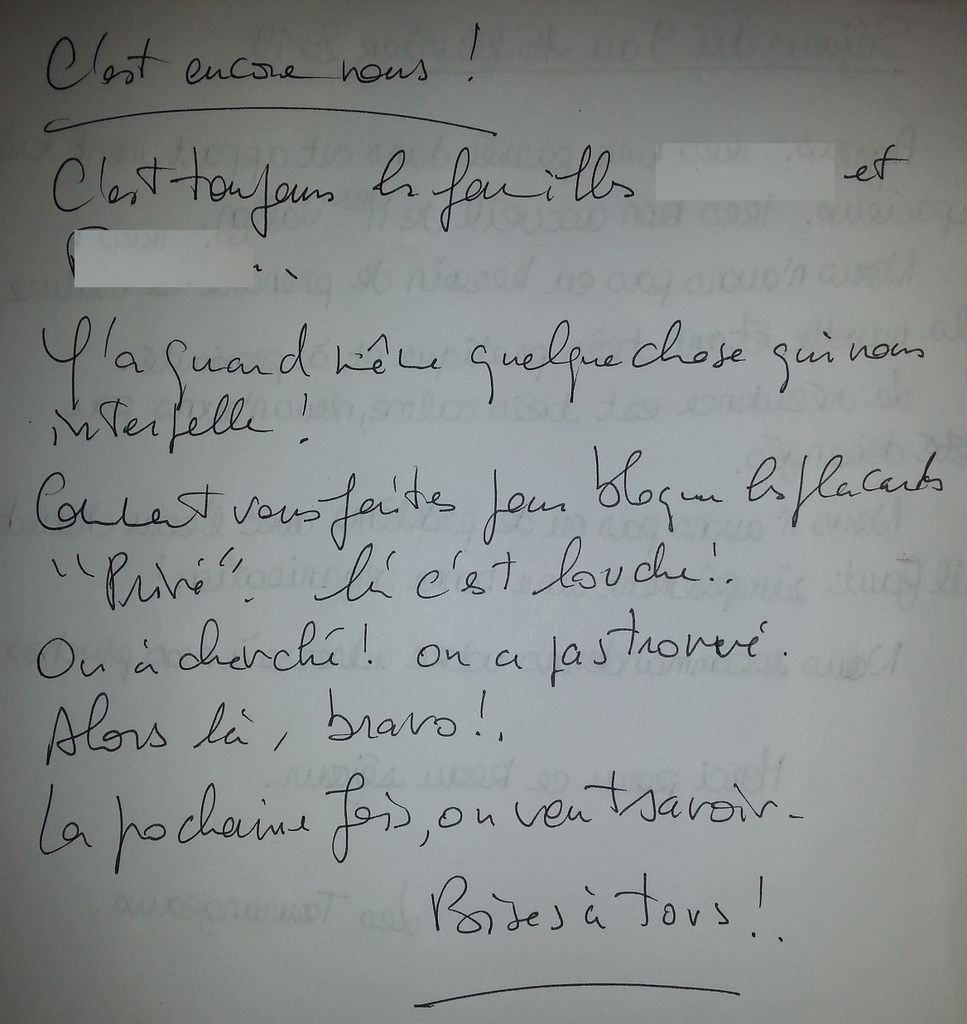 C'est encore nous !
C'est toujours les familles et
Y'a quand même quelque chose qui nous
interpelle !
Comment vous faites pour bloquer les placards
"Privé". là c'est louche !.
On à cherché ! on a pas trouvé.
Alors là, bravo !.
La pochaine fois, on veut savoir -
Bises à tous !.